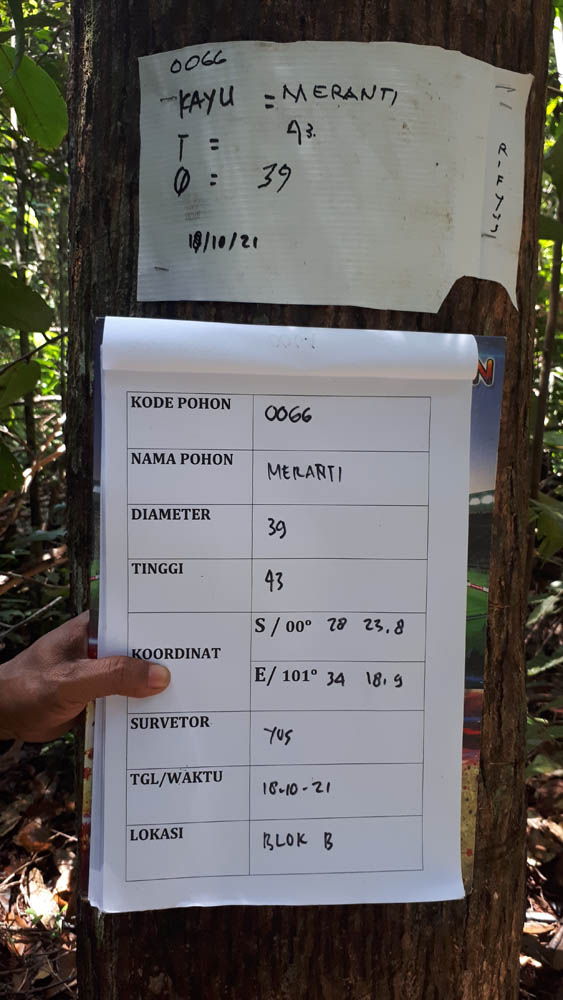 0066
KAYU = MERANTI
T = 43.
Ø = 39
18/10/21
KODE POHON 0066
NAMA POHON MERANTI
DIAMETER 39
TINGGI 43
KOORDINAT S / 00° 28 23.8
E/ 101° 34 18.9
SURVETOR YUS
TGL/WAKTU 18-10-21
LOKASI BLOK B
N